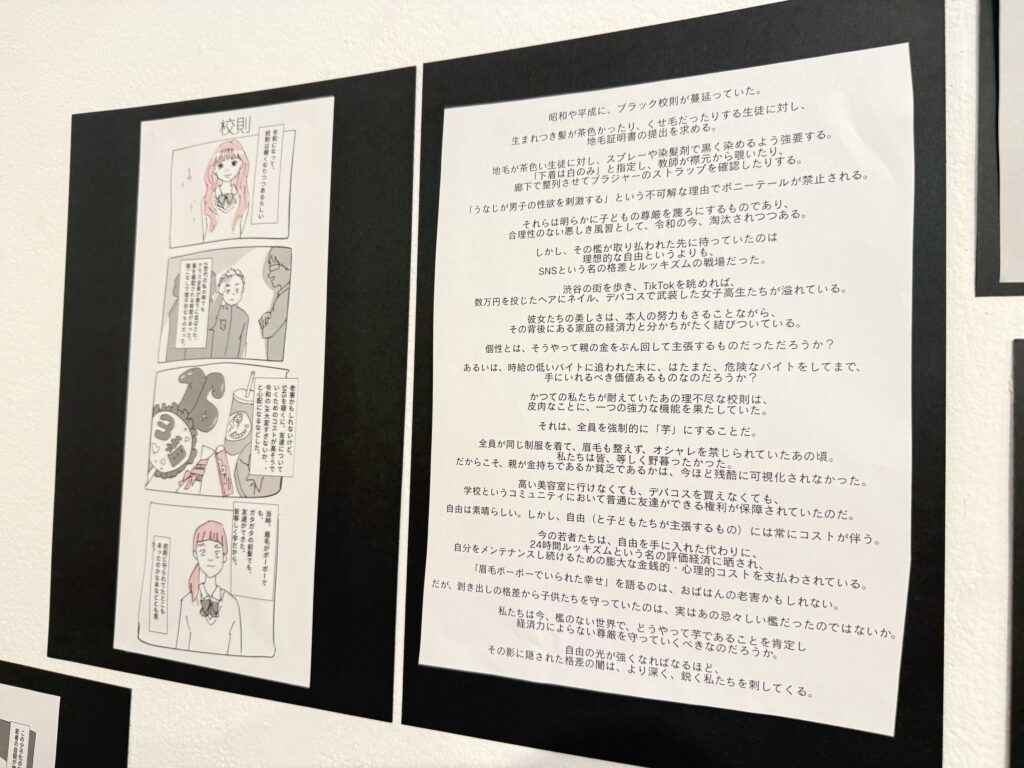 校則
令和になって、
校則は緩くなりつつあるらしい
クラス全員が廊下に並ばされ、
老害かもしれないけど、
SNSを覗くに、友達について
いくためのコストが高そうで
令和のJK大変すぎないか、、
と心配になるなどした。
当時、眉毛がボーボーで
も、
ガタガタの前髪でも、
友達ができた。
皆等しく芋だから。
校則に守られてたとこも
あったのかなあなどとも思
う。
昭和や平成に、ブラック校則が蔓延っていた。
生まれつき髪が茶色かったり、くせ毛だったりする生徒に対し、
地毛証明書の提出を求める。
地毛が茶色い生徒に対し、スプレーや染髪剤で黒く染めるよう強要する。
「下着は白のみ」と指定し、教師が襟元から覗いたり、
廊下で整列させてブラジャーのストラップを確認したりする。
「うなじが男子の性欲を刺激する」という不可解な理由でポニーテールが禁止される。
それらは明らかに子どもの尊厳を蔑ろにするものであり、
合理性のない悪しき風習として、令和の今、淘汰されつつある。
しかし、その檻が取り払われた先に待っていたのは
理想的な自由というよりも、
SNSという名の格差とルッキズムの戦場だった。
渋谷の街を歩き、TikTokを眺めれば、
数万円を投じたヘアにネイル、デパコスで武装した女子高生たちが溢れている。
彼女たちの美しさは、本人の努力もさることながら、
その背後にある家庭の経済力と分かちがたく結びついている。
個性とは、そうやって親の金をぶん回して主張するものだっただろうか？
あるいは、時給の低いバイトに追われた末に、はたまた、危険なバイトをしてまで、
手にいれるべき価値あるものなのだろうか？
かつての私たちが耐えていたあの理不尽な校則は、
皮肉なことに、一つの強力な機能を果たしていた。
それは、全員を強制的に「芋」にすることだ。
全員が同じ制服を着て、眉毛も整えず、オシャレを禁じられていたあの頃。
私たちは皆、等しく野暮ったかった。
だからこそ、親が金持ちであるか貧乏であるかは、今ほど残酷に可視化されなかった。
高い美容室に行けなくても、デパコスを買えなくても、
学校というコミュニティにおいて普通に友達ができる権利が保障されていたのだ。
自由は素晴らしい。しかし、自由（と子どもたちが主張するもの）には常にコストが伴う。
今の若者たちは、自由を手に入れた代わりに、
24時間ルッキズムという名の評価経済に晒され、
自分をメンテナンスし続けるための膨大な金銭的・心理的コストを支払わされている。
「眉毛ボーボーでいられた幸せ」を語るのは、おばはんの老害かもしれない。
だが、剥き出しの格差から子供たちを守っていたのは、実はあの忌々しい檻だったのではないか。
私たちは今、檻のない世界で、どうやって芋であることを肯定し
経済力によらない尊厳を守っていくべきなのだろうか。
自由の光が強くなればなるほど、
その影に隠された格差の闇は、より深く、鋭く私たちを刺してくる。